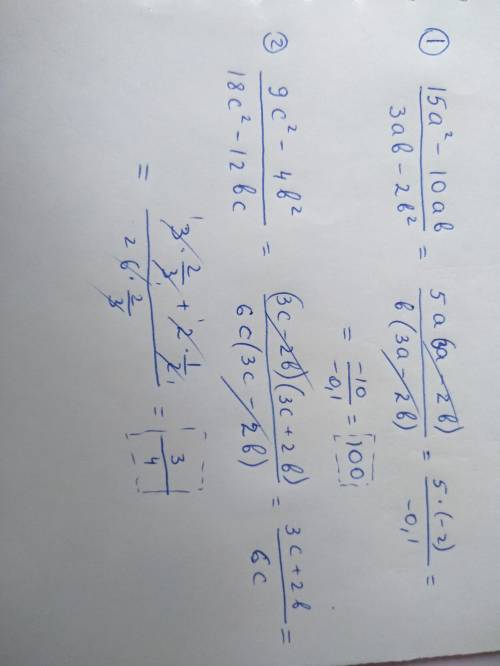 ① (15a² - 10ab)/(3ab - 2b²) = (5a(3a - 2b))/(b(3a - 2b)) = (5·(-2))/(-0,1) =
= (-10)/(-0,1) = 100
② (9c² - 4b²)/(18c² - 12bc) = ((3c - 2b)(3c + 2b))/(6c(3c - 2b)) = (3c + 2b)/(6c) =
= (3·2/3 + 2·1/2)/(6·2/3) = 3/4